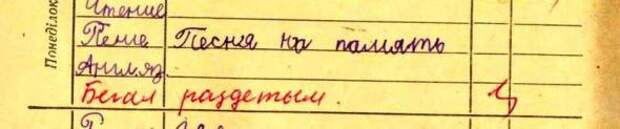 Понеділок
Чтение
Пение Песня на память
Англ.яз.
Бегал раздетым.